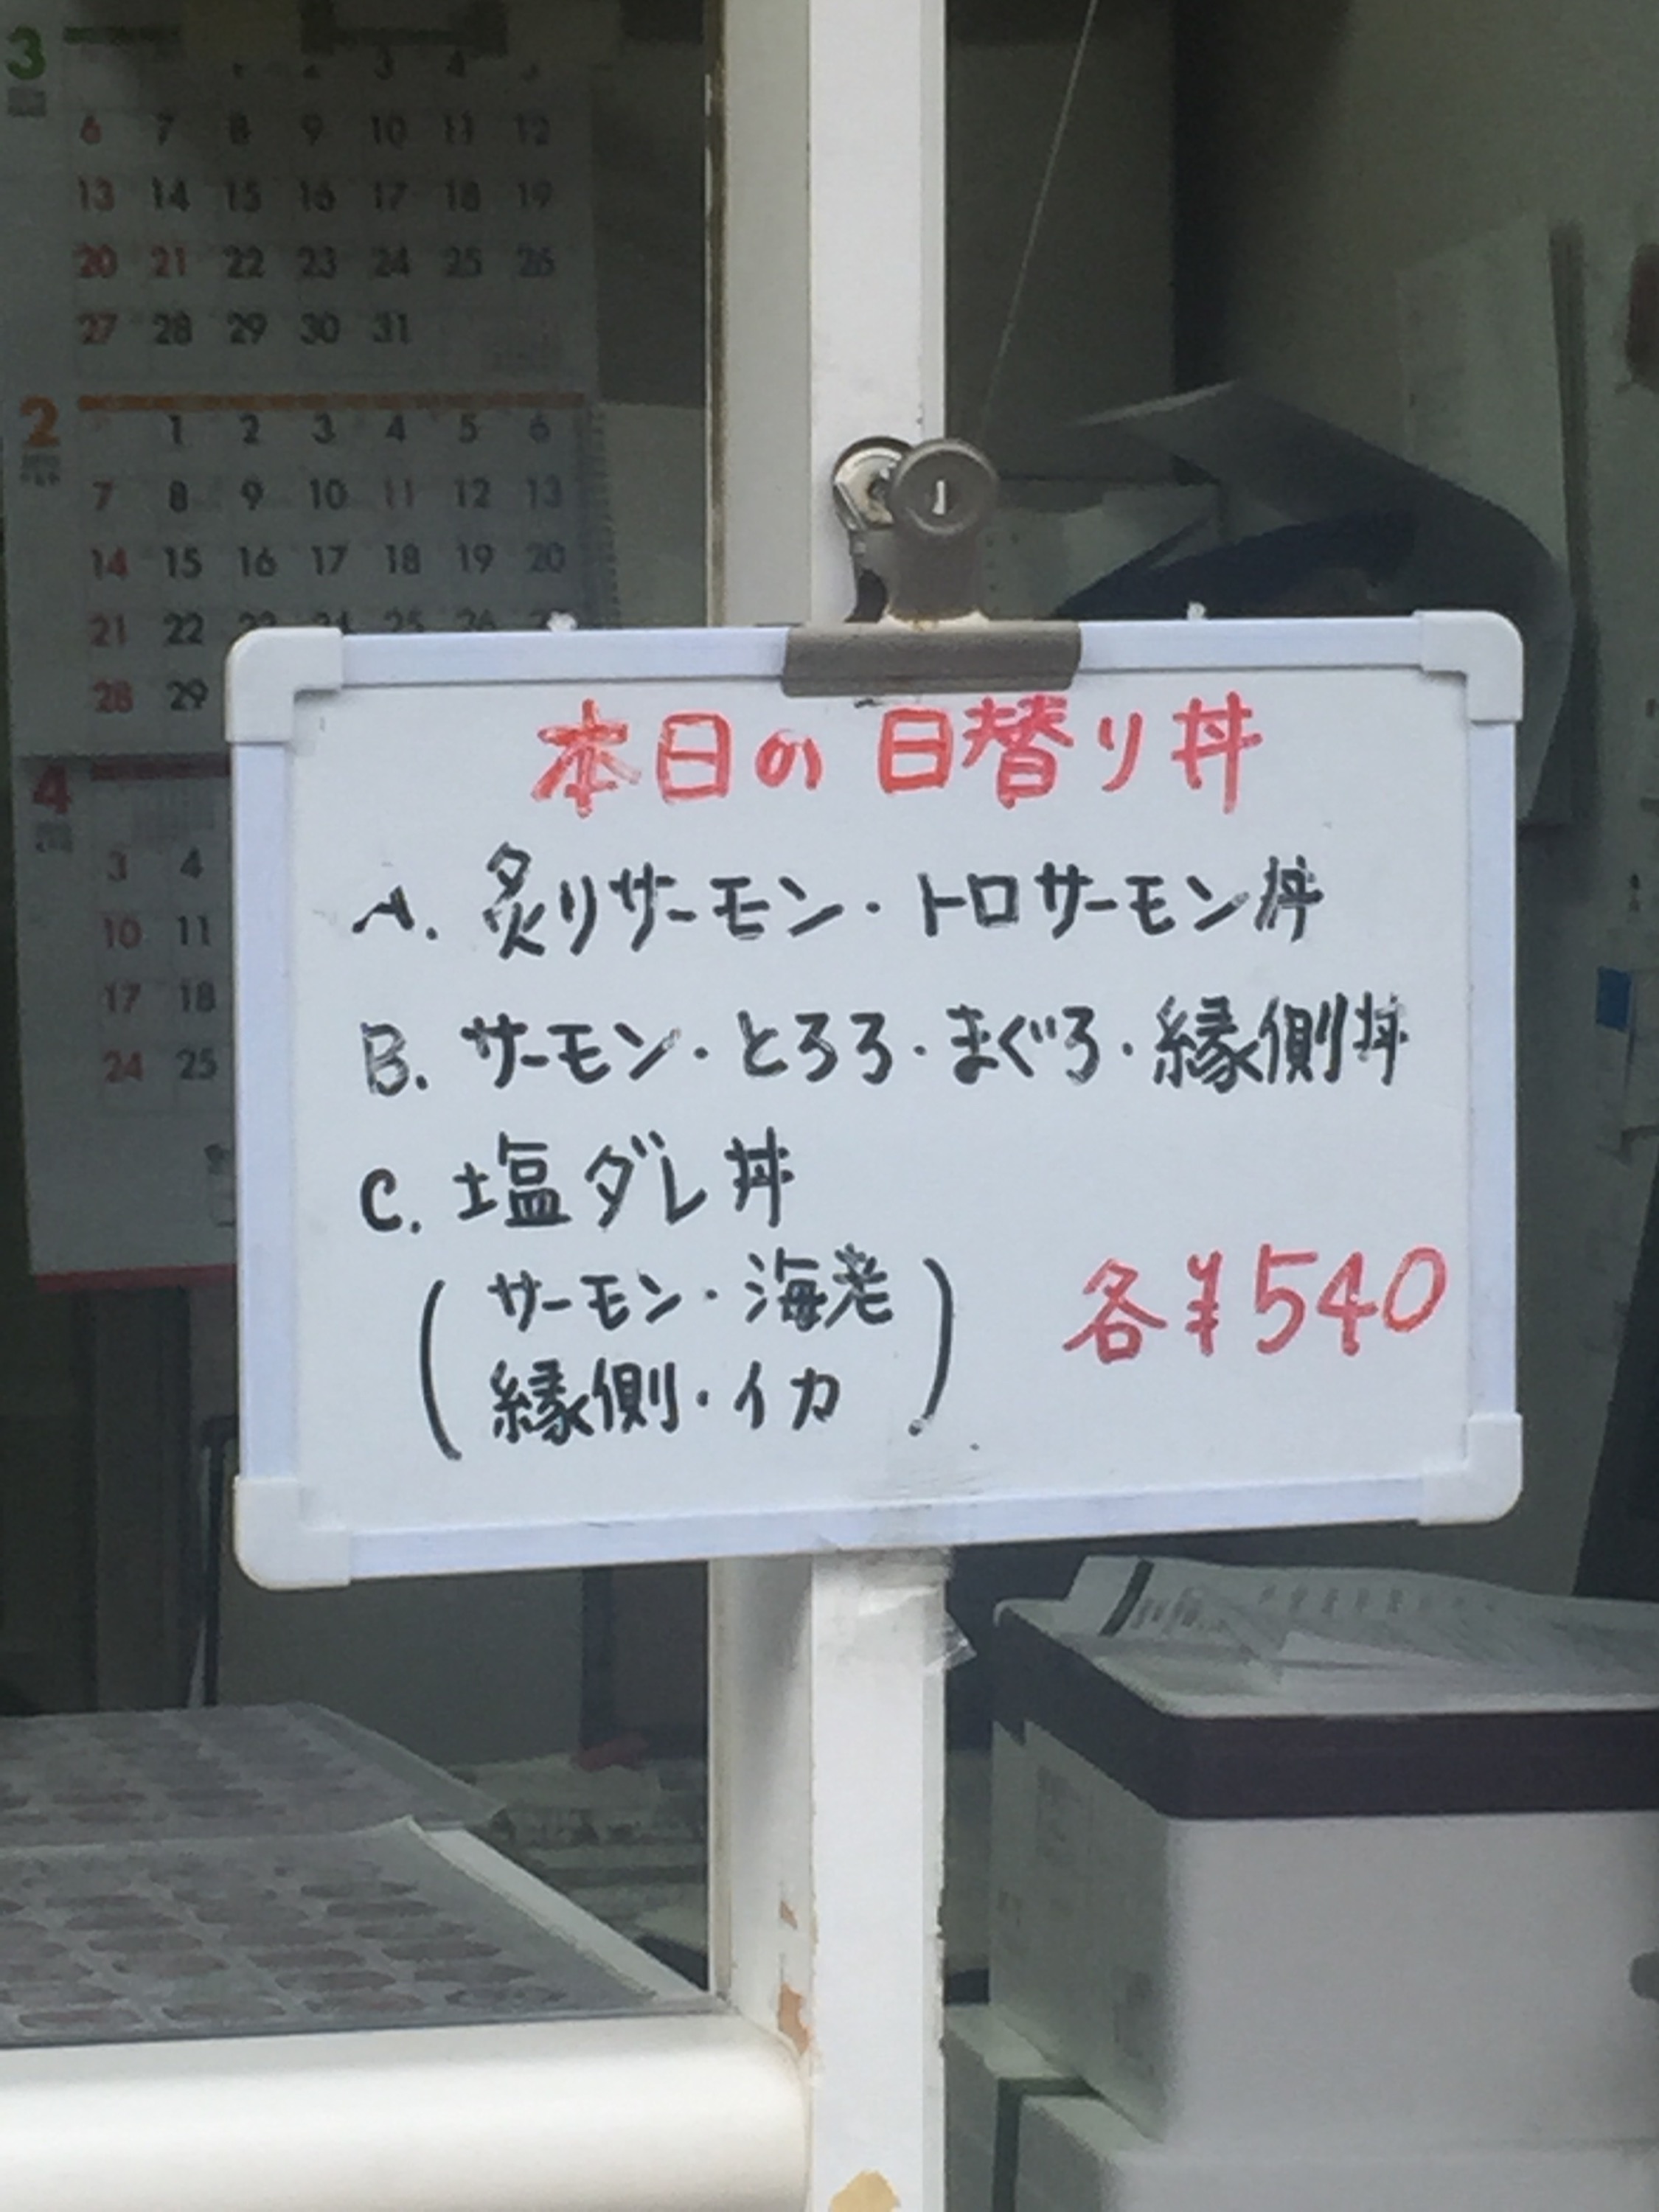 3
3 4
6 7 8 9 10 11 12
13 14 15 16 17 18 19
20 21 22 23 24 25 26
27 28 29 30 31
2
1 2 3 4 5 6
7 8 9 10 11 12 13
14 15 16 17 18 19 20
21 22 23 24 25 26 27
28 29
4
3 4
10 11
17 18
24 25
本日の 日替り丼
A. 炙りサーモン・トロサーモン丼
B. サーモン・とろろ・まぐろ・縁側丼
C. 塩ダレ丼
(サーモン・海老
縁側・イカ)
各¥540